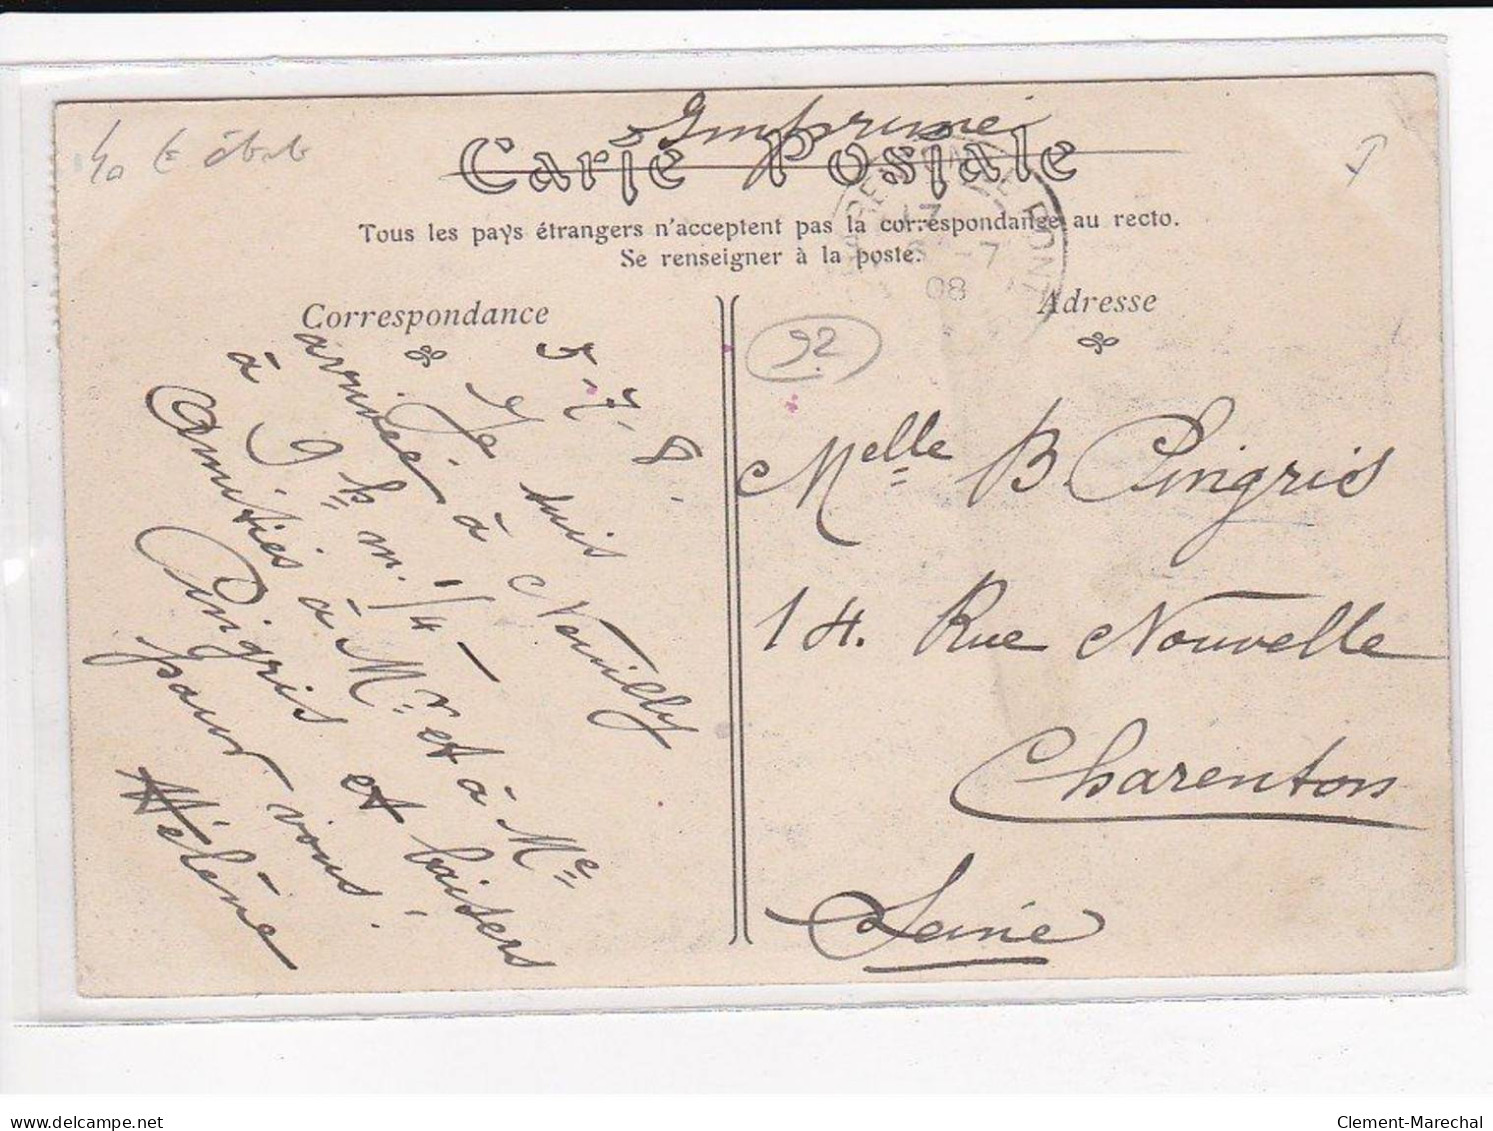 Imprimé
Carte Postale
Tous les pays étrangers n'acceptent pas la correspondance au recto.
Se renseigner à la poste.
17
6 -7
08
Correspondance
Adresse
92
5-7-8.
Je suis
arrivée à Neuilly
à 9h m. 1/4 -
Amitiés à Mr et à Me
Pingris et baisers
pour vous.
Hélène
Melle B Pingris
14. Rue Nouvelle
Charenton
Seine
delcampe.net
Clement-Marechal